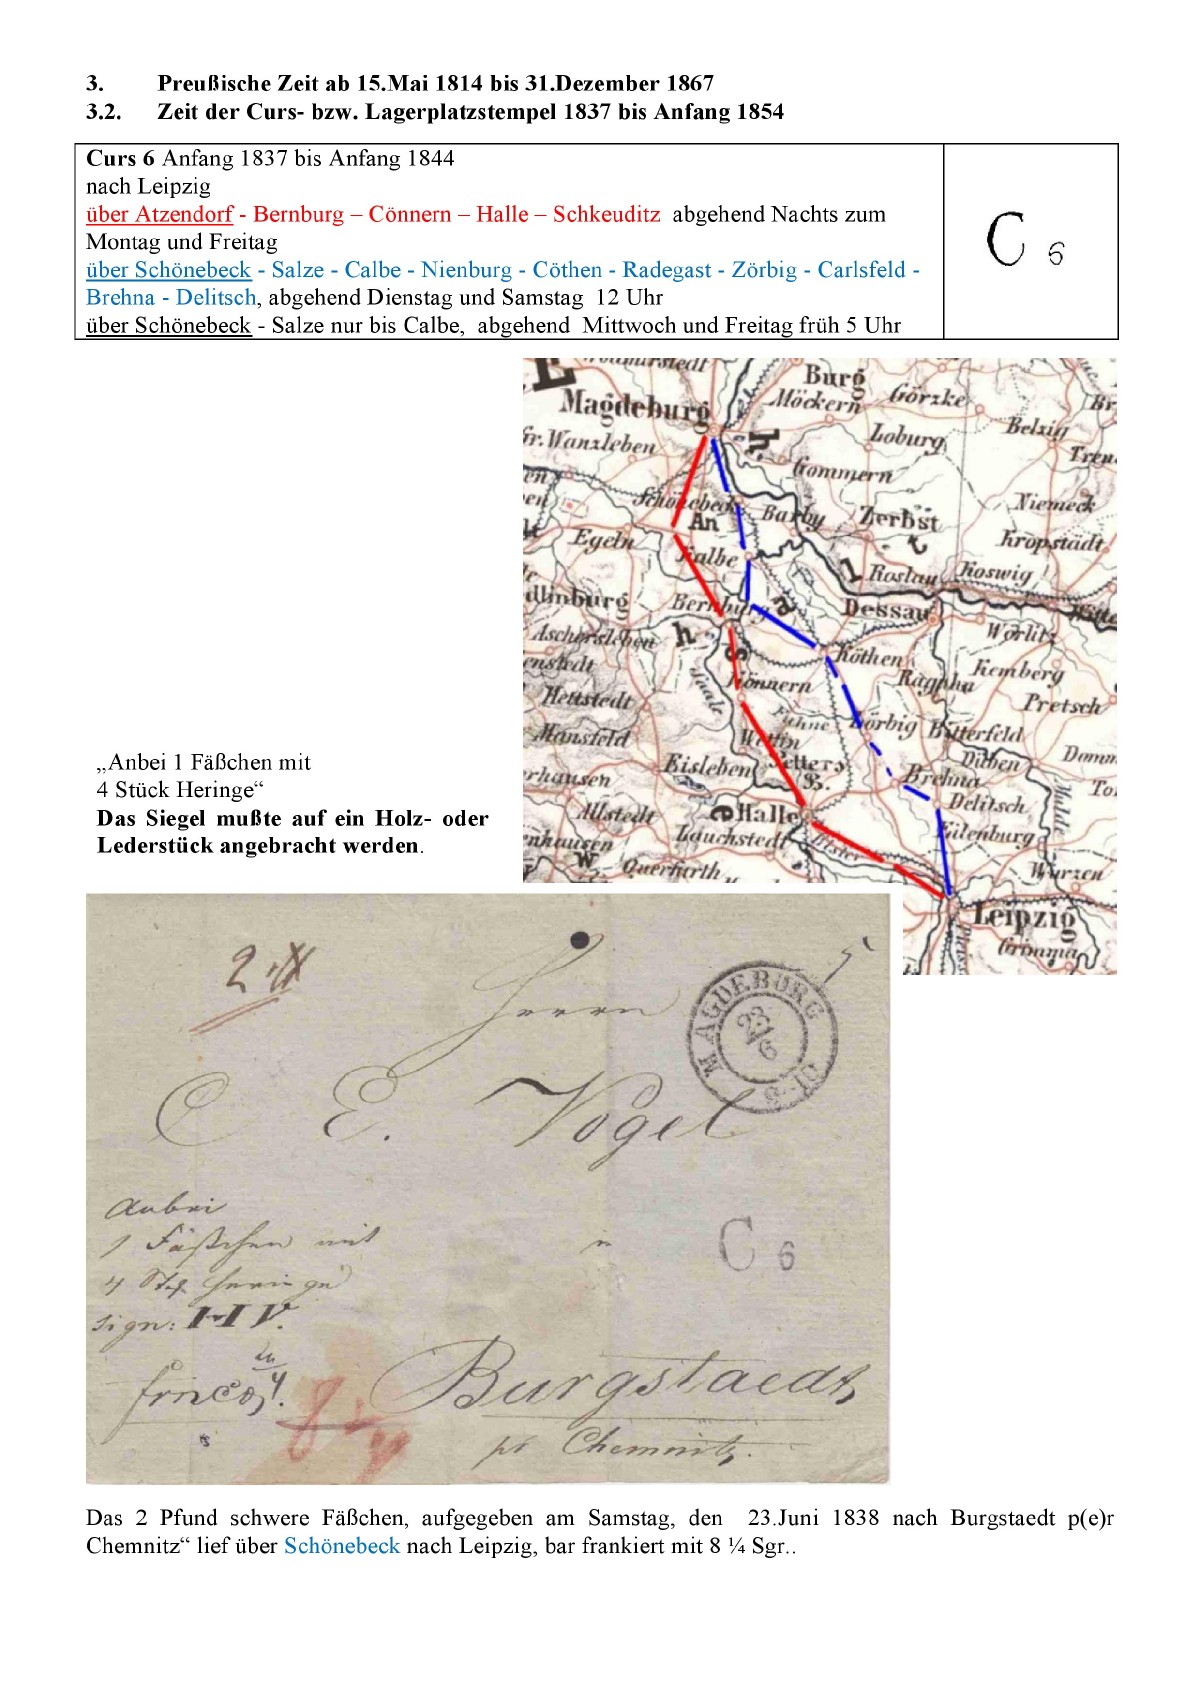 3. Preußische Zeit ab 15.Mai 1814 bis 31.Dezember 1867
3.2. Zeit der Curs- bzw. Lagerplatzstempel 1837 bis Anfang 1854
Curs 6 Anfang 1837 bis Anfang 1844
nach Leipzig
über Atzendorf - Bernburg – Cönnern – Halle – Schkeuditz abgehend Nachts zum
Montag und Freitag
über Schönebeck - Salze - Calbe - Nienburg - Cöthen - Radegast - Zörbig - Carlsfeld -
Brehna - Delitsch, abgehend Dienstag und Samstag 12 Uhr
über Schönebeck - Salze nur bis Calbe, abgehend Mittwoch und Freitag früh 5 Uhr
C 6
Burg
Magdeburg
Möckern
Görzke
Gr. Wanzleben
Loburg
Belzig
Gommern
Schönebeck
Barby
Zerbst
Niemeck
Egeln
Kalbe
Kropstädt
Roslau
Koswig
Bernburg
Dessau
Wörlitz
Aschersleben
Köthen
Kemberg
Hettstedt
Könnern
Raguhn
Pretsch
Saale
Fuhne
Zörbig
Bitterfeld
Mansfeld
Wettin
Eisleben
Petters B.
Brehna
Düben
Allstedt
Halle
Delitsch
Lauchstedt
Elster
Eilenburg
Querfurth
Wurzen
Leipzig
Grimma
„Anbei 1 Fäßchen mit
4 Stück Heringe“
Das Siegel mußte auf ein Holz- oder
Lederstück angebracht werden.
Herrn
MAGDEBURG
23/6
C E. Vogel
Anbei
1 Fäßchen mit
4 Stck Heringe
sign:
C 6
franco
Burgstaedt
pr Chemnitz.
Das 2 Pfund schwere Fäßchen, aufgegeben am Samstag, den 23.Juni 1838 nach Burgstaedt p(e)r
Chemnitz“ lief über Schönebeck nach Leipzig, bar frankiert mit 8 ¼ Sgr..